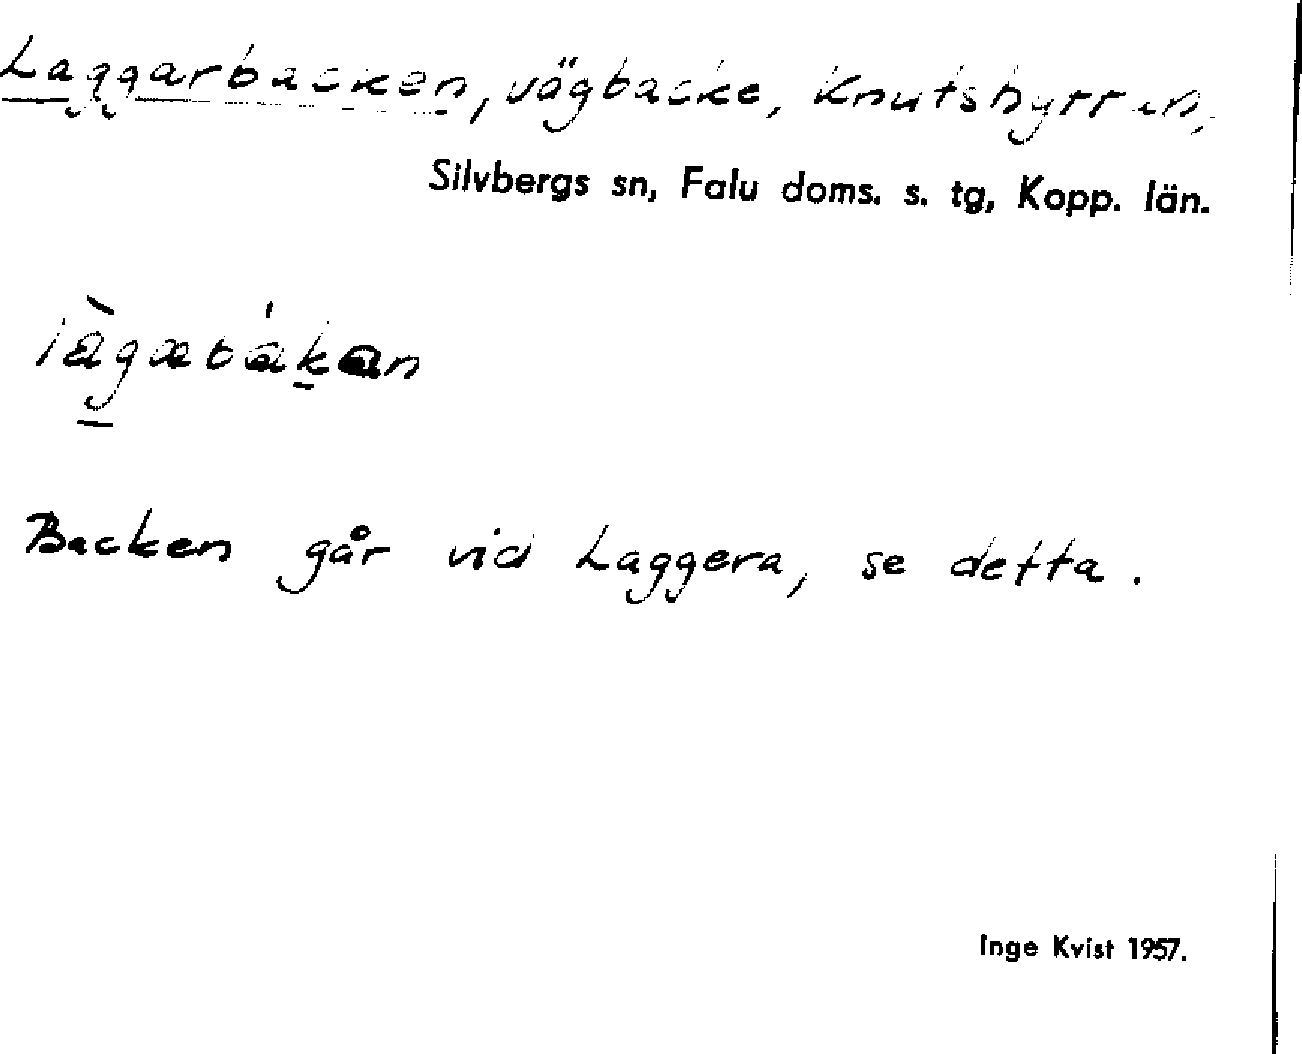 Laggarbacken, vägbacke, Knutshyttan,
Silvbergs sn, Falu doms. s. tg, Kopp. län.
làgæbákan
Backen går vid Laggera, se detta.
Inge Kvist 1957.